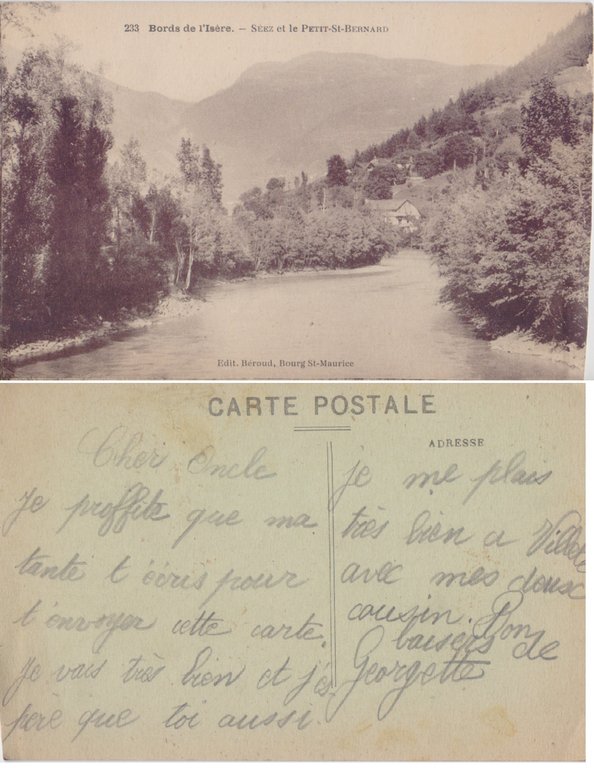 233 Bords de l'Isère. – SÉEZ et le PETIT-St-BERNARD
Edit. Béroud, Bourg St-Maurice
CARTE POSTALE
ADRESSE
Cher Oncle
Je proffite que ma
tante t'écris pour
t'envoyer cette carte.
Je vais très bien et j'es
père que toi aussi.
je me plais
très bien a Villete
avec mes doux
cousin. Bon
baisers de
Georgette